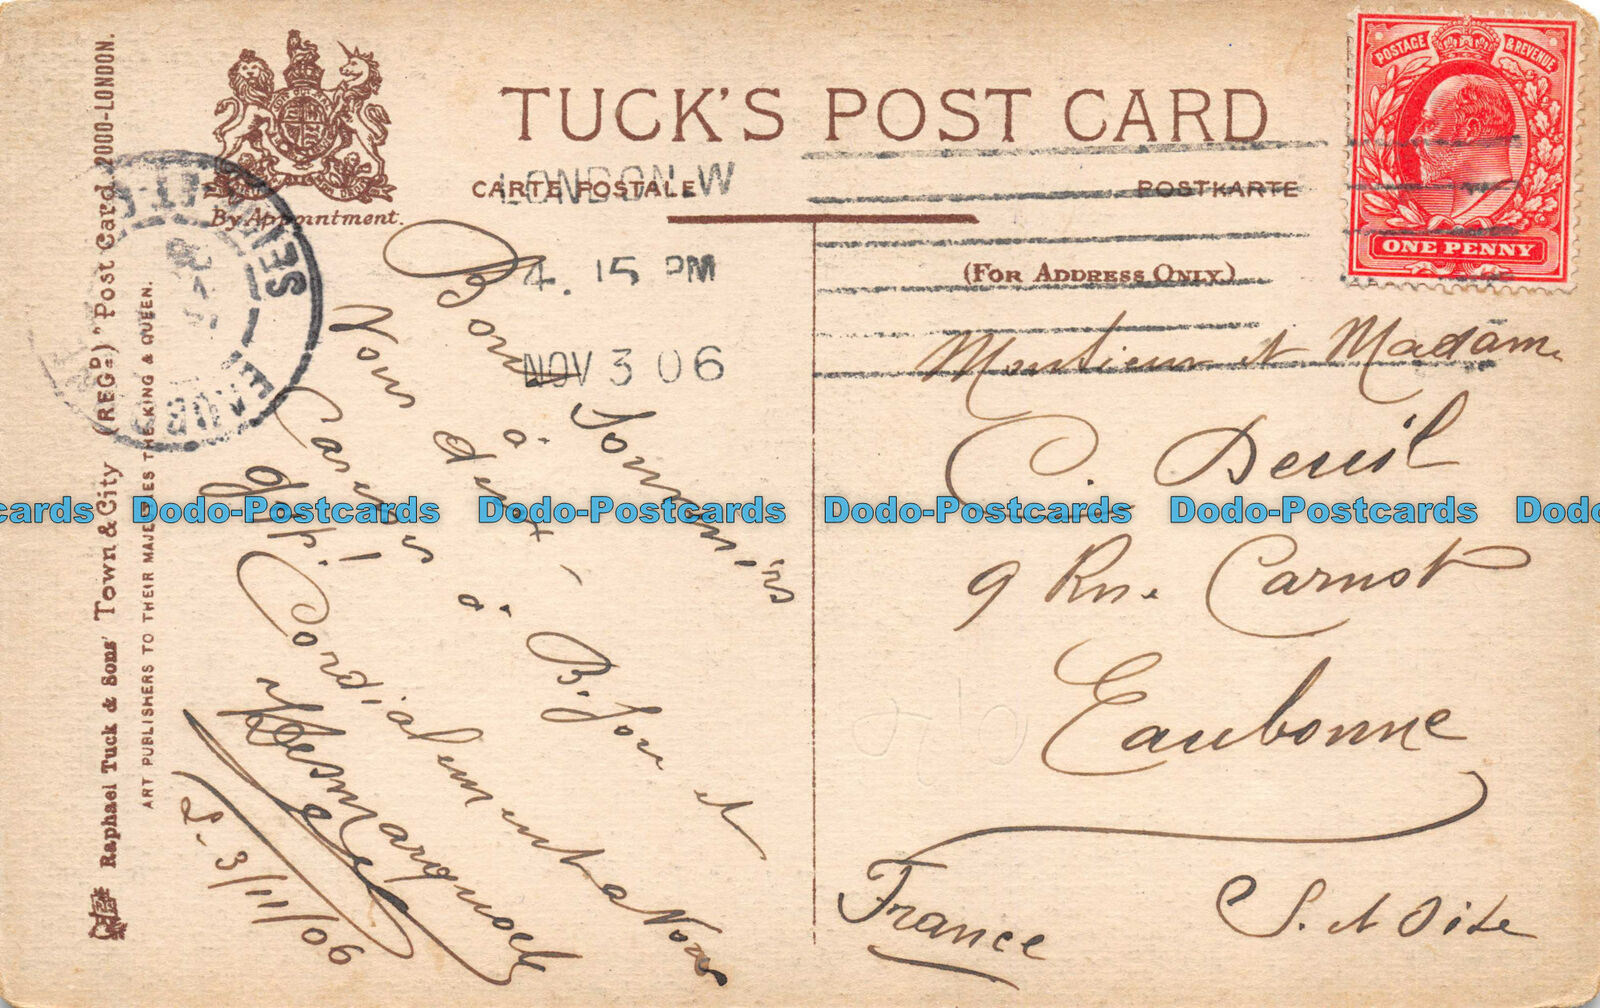 TUCK'S POST CARD
CARTE POSTALE POSTKARTE
(FOR ADDRESS ONLY.)
By Appointment.
POSTAGE & REVENUE
ONE PENNY
LONDON.W
4. 15 PM
NOV 3 06
Raphael Tuck & Sons' Town & City (REGD) "Post Card 2000-LONDON.
ART PUBLISHERS TO THEIR MAJESTIES THE KING & QUEEN.
EAUBONNE
Bons Souvenirs
à
Vous deux
Caresses à B.
Cordialement a Vous
L. 3/11/06
Monsieur et Madame
C. Deuil
9 Rue Carnot
Eaubonne
S. et Oise
France
Dodo-Postcards Dodo-Postcards Dodo-Postcards Dodo-Postcards